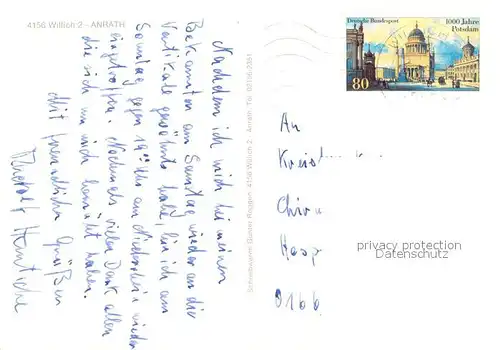 4156 Willich 2 - ANRATH
Nachdem ich mich bei meinen
Bekannten am Samstag wieder an die
Vertikale gewöhnt habe, bin ich am
Sonntag gegen 19 Uhr am Niederrhein wieder
eingetroffen. Nochmals vielen Dank allen
die sich um mich bemüht haben.
Mit freundlichen Grüßen
Deutsche Bundespost
1000 Jahre
Potsdam
80
An
Kreis
Chiru
Hosp
0166
privacy protection
Datenschutz